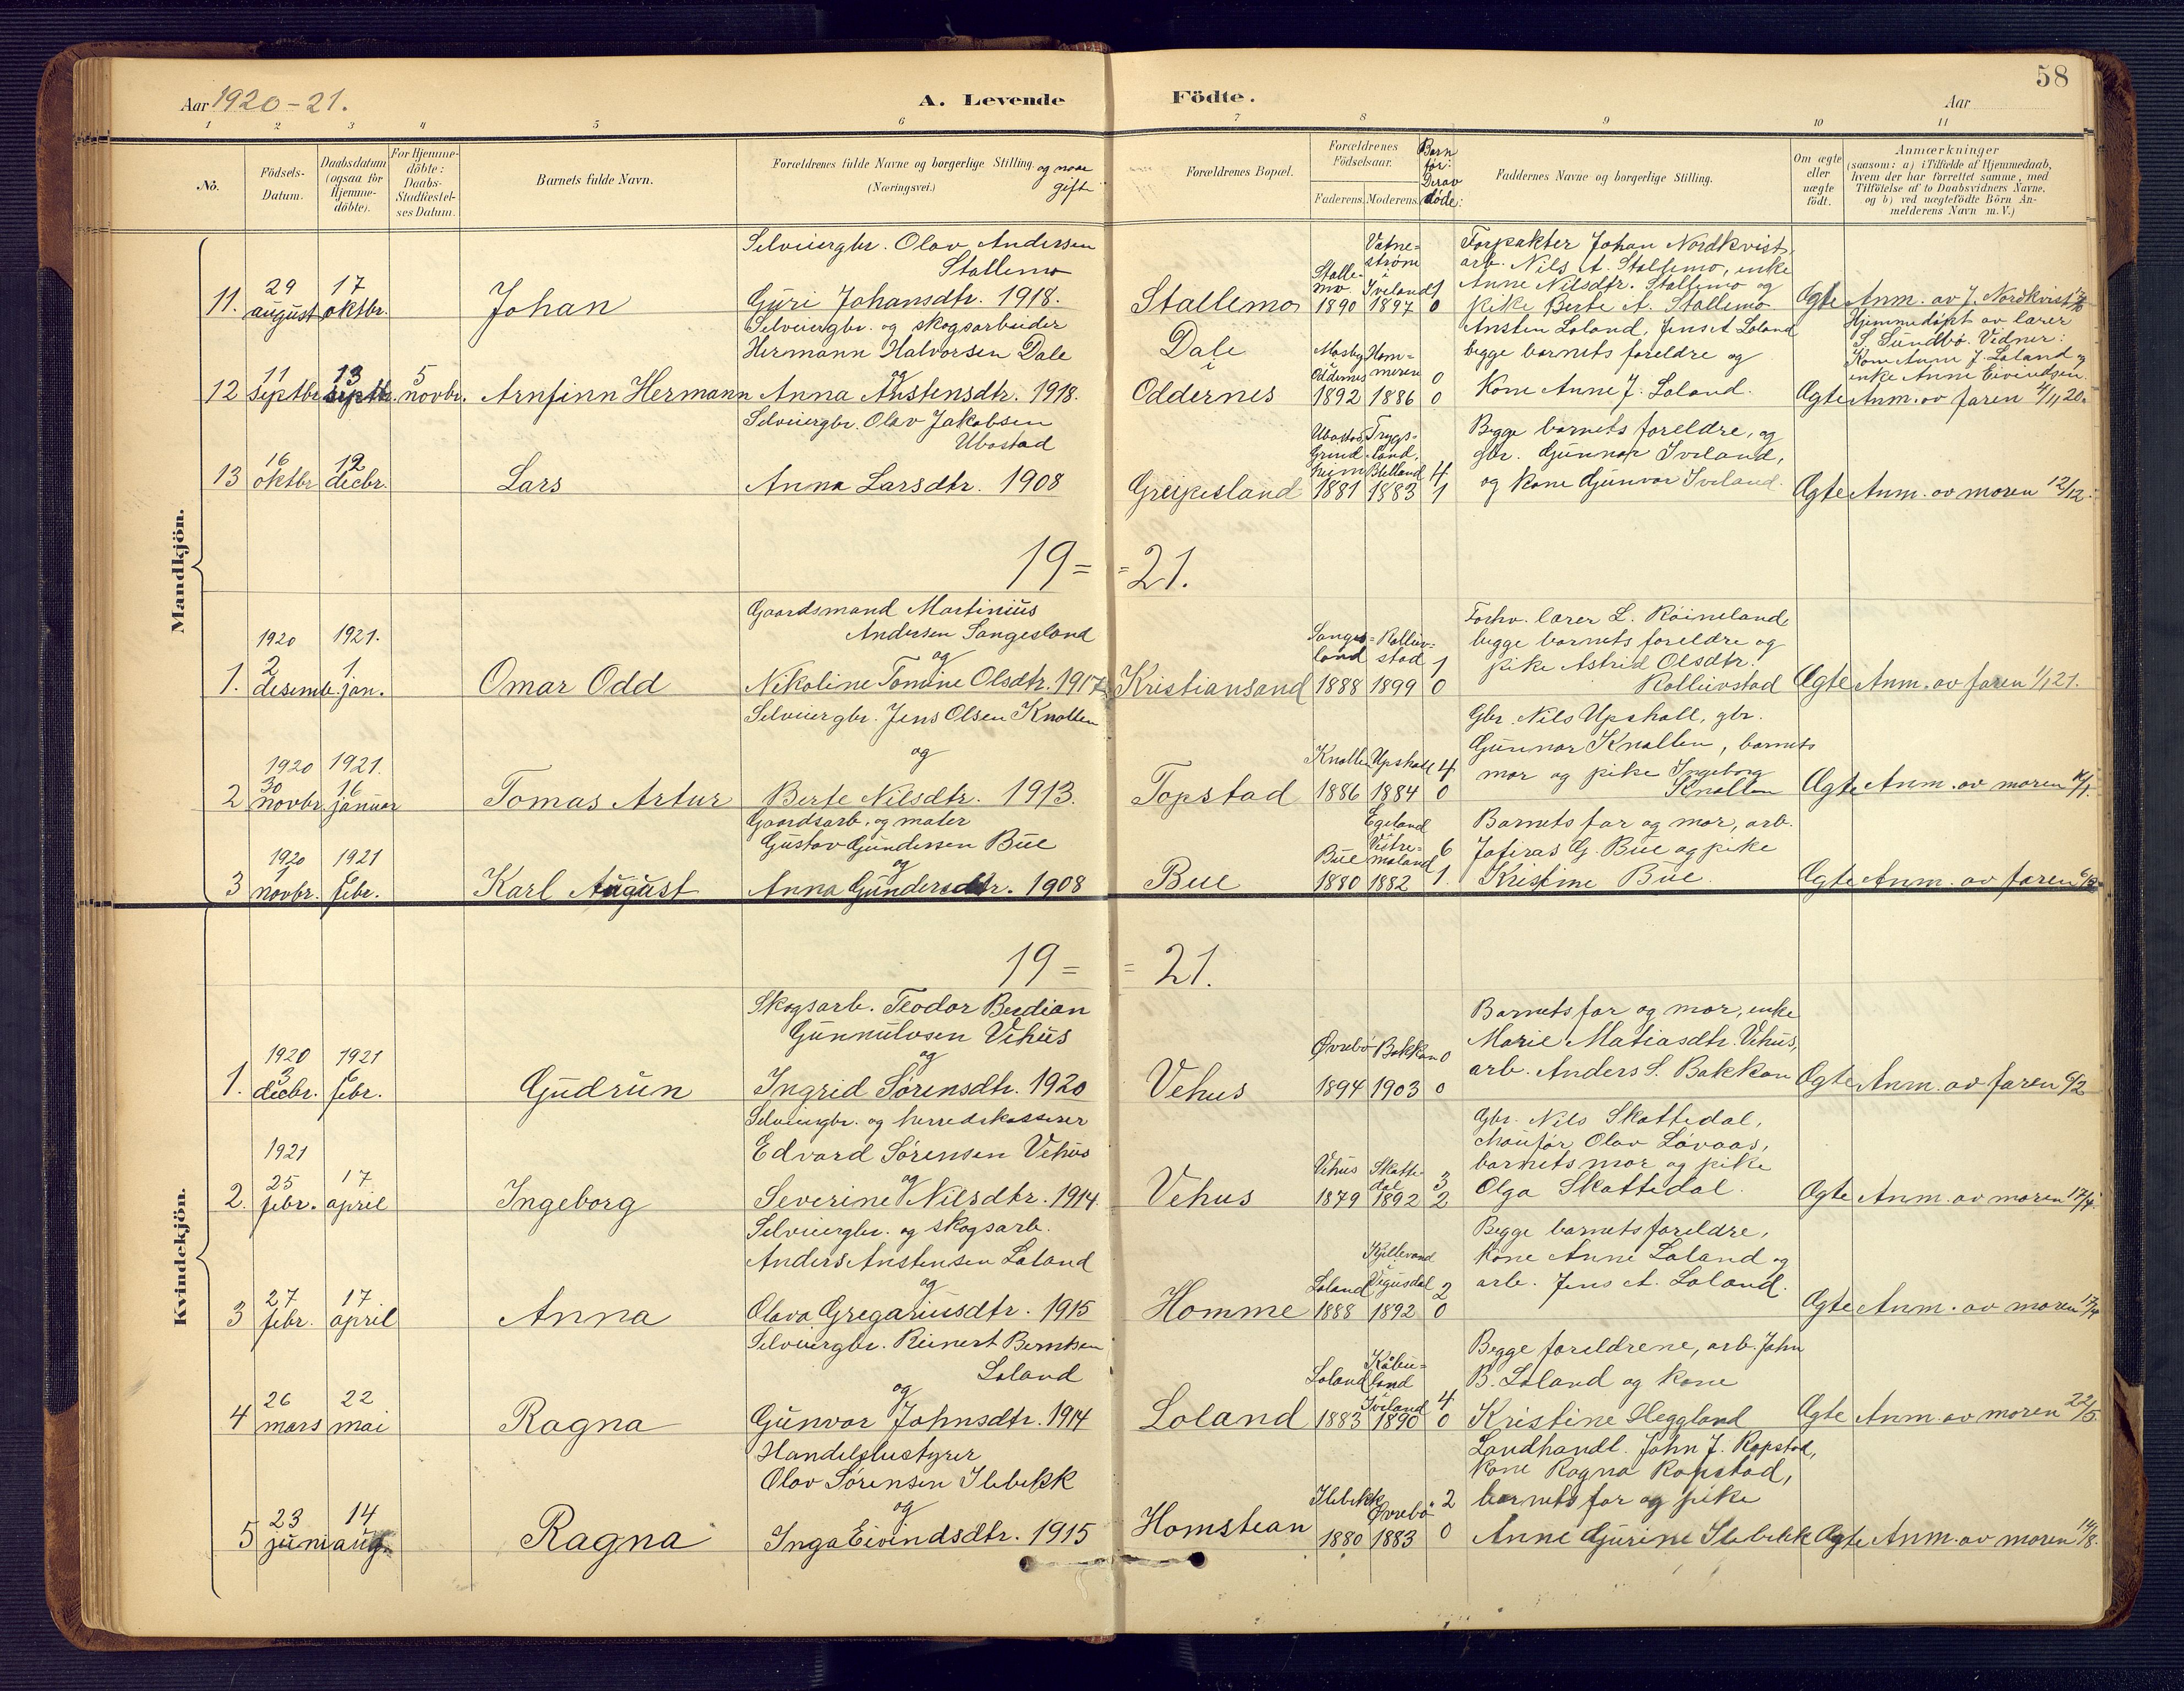 58
Aar 1920-21.
A. Levende
Födte.
Aar
1 2 3 4 5 6 7 8 9 10 11
No.
Födsels-
Datum.
Daabsdatum
(ogsaa for
Hjemme-
döbte).
For Hjemme-
döbte:
Daabs-
Stadfæstel-
ses Datum.
Barnets fulde Navn.
Forældrenes fulde Navne og borgerlige Stilling. og naar
(Næringsvei.) gift
Forældrenes Bopæl.
Forældrenes
Födselsaar.
Faderens. Moderens.
Barn
før:
Derav
døde:
Faddernes Navne og borgerlige Stilling.
Om ægte
eller
uægte
födt.
Anmærkninger
(saasom: a) i Tilfælde af Hjemmedaab,
hvem der har forrettet samme, med
Tilföielse af to Daabsvidners Navne,
og b) ved uægtefödte Börn An-
melderens Navn m. V.)
Mandkjön.
11.
29
august
17
oktbr.
Johan
Selveiergbr. Olav Andersen
Stallemo
Guri Johansdtr. 1918.
Stallemo
Stalle-
mo
1890
Vatne-
strøm
i
Iveland
1897
1
0
Forpakter Johan Nordkvist,
arb. Nils A. Stallemo, enke
Anne Nilsdtr. Stallemo og
pike Berte A. Stallemo
Ægte
Anm. av J. Nordkvist 17/10
12
11
septbr.
13
septbr.
5
novbr.
Arnfinn Hermann
Selveiergbr. og skogsarbeider
Hermann Halvorsen Dale
og
Anna Austensdtr. 1918.
Dale
i
Oddernes
Mosby
Oddernes
1892
Hom-
meren
1886
0
0
Ansten Loland, Jens A. Loland
begge barnets foreldre og
Kone Anne J. Loland.
Ægte
Hjemmedøpt av lærer
S. Sundbø. Vidner:
Kone Anne J. Loland og
enke Anne Eivindsen.
Anm. av faren 4/11 20.
13
16
oktbr.
12
decbr.
Lars
Selveiergbr. Olav Jakobsen
Ubostad
Anna Larsdtr. 1908
Greipesland
Ubostad,
Grind-
heim
1881
Trygs-
land,
Bjelland
1883
4
1
Begge barnets foreldre, og
gbr. Gunnar Iveland,
og kone Gunvor Iveland.
Ægte
Anm. av moren 12/12.
19= =21.
1.
1920
2
desemb.
1921.
1.
jan.
Omar Odd
Gaardsmand Martinius
Andersen Sangesland
og
Nikoline Tomine Olsdtr. 1917
Kristiansand
Sanges-
land
1888
Rolliv-
stad
1899
1
0
Forhv. lærer L. Røineland,
begge barnets foreldre og
pike Astrid Olsdtr.
Rollivstad
Ægte
Anm. av faren 1/1 21.
2
1920
30
novbr.
1921.
16
januar
Tomas Artur
Selveiergbr. Jens Olsen Knallen
og
Berte Nilsdtr. 1913.
Topstad
Knallen
1886
Upshall
1884
4
0
Gbr. Nils Upshall, gbr.
Gunnar Knallen, barnets
mor og pike Ingeborg
Knallen
Ægte
Anm. av moren 16/1.
3
1920
9
novbr.
1921
6
febr.
Karl August
Gaardsarb. og maler
Gustav Gundersen Bue
og
Anna Gundersdtr. 1908
Bue
Bue
1880
Egeland
Vestre-
moland
1882
6
1.
Barnets far og mor, arb.
Jafiras G. Bue og pike
Kristine Bue.
Ægte
Anm. av faren 6/2
Kvindekjön.
19= =21.
1.
1920
3
decbr.
1921
6
febr.
Gudrun
Skogsarb. Teodor Berdian
Gunnulvsen Vehus
og
Ingrid Sørensdtr. 1920
Vehus
Øvrebø
1894
Bakkan
1903
0
0
Barnets far og mor, enke
Marie Matiasdtr. Vehus,
arb. Anders S. Bakkan
Ægte
Anm. av faren 6/2
2.
1921
25
febr.
17
april
Ingeborg
Selveiergbr. og herredskasserer
Edvard Sørensen Vehus
og
Severine Nilsdtr. 1914.
Vehus
Vehus
1879
Skatte-
dal
1892
3
2
Gbr. Nils Skattedal,
chaufør Olav Løvaas,
barnets mor og pike
Olga Skattedal.
Ægte
Anm. av moren 17/4.
3
27
febr.
17
april
Anna
Selveiergbr. og skogsarb.
Anders Anstensen Loland
og
Olava Gregariusdtr. 1915
Homme
Loland
1888
Kjellevand
Vegusdal
1892
2
0
Begge barnets foreldre,
kone Anne Loland og
arb. Jens A. Loland.
Ægte
Anm. av moren 17/4
4
26
mars
22
mai
Ragna
Selveiergbr. Reinert Berntsen
Loland
og
Gunvor Johnsdtr. 1914
Loland
Loland
1883
Kåbu-
land
Iveland
1890
4
0
Begge foreldrene, arb. John
B. Loland og kone
Kristine Heggland
Ægte
Anm. av moren 22/5.
5
23
juni
14
aug.
Ragna
Handelsbestyrer
Olav Sørensen Ilebekk
og
Inga Eivindsdtr. 1915
Homstean
Ilebekk
1880
Øvrebø
1883
2
0
Landhandl. John J. Ropstad,
kone Ragna Ropstad,
barnets far og pike
Anne Gurine Ilebekk
Ægte
Anm. av moren 14/8.